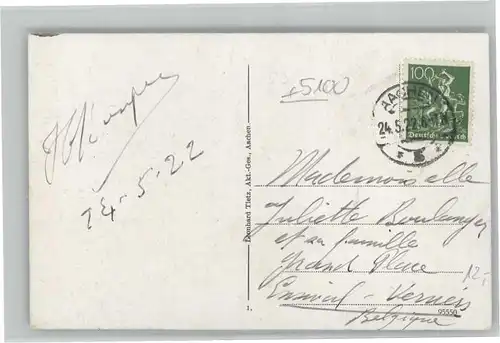 +5100
100
AACHEN
24.5.22.
Deutsches Reich
24-5-22
Leonhard Tietz, Akt.-Ges., Aachen
Mademoiselle
Juliette Boulanger
et sa famille
Grand Place
Ensival-Verviers
Belgique
12,-
1.
95550